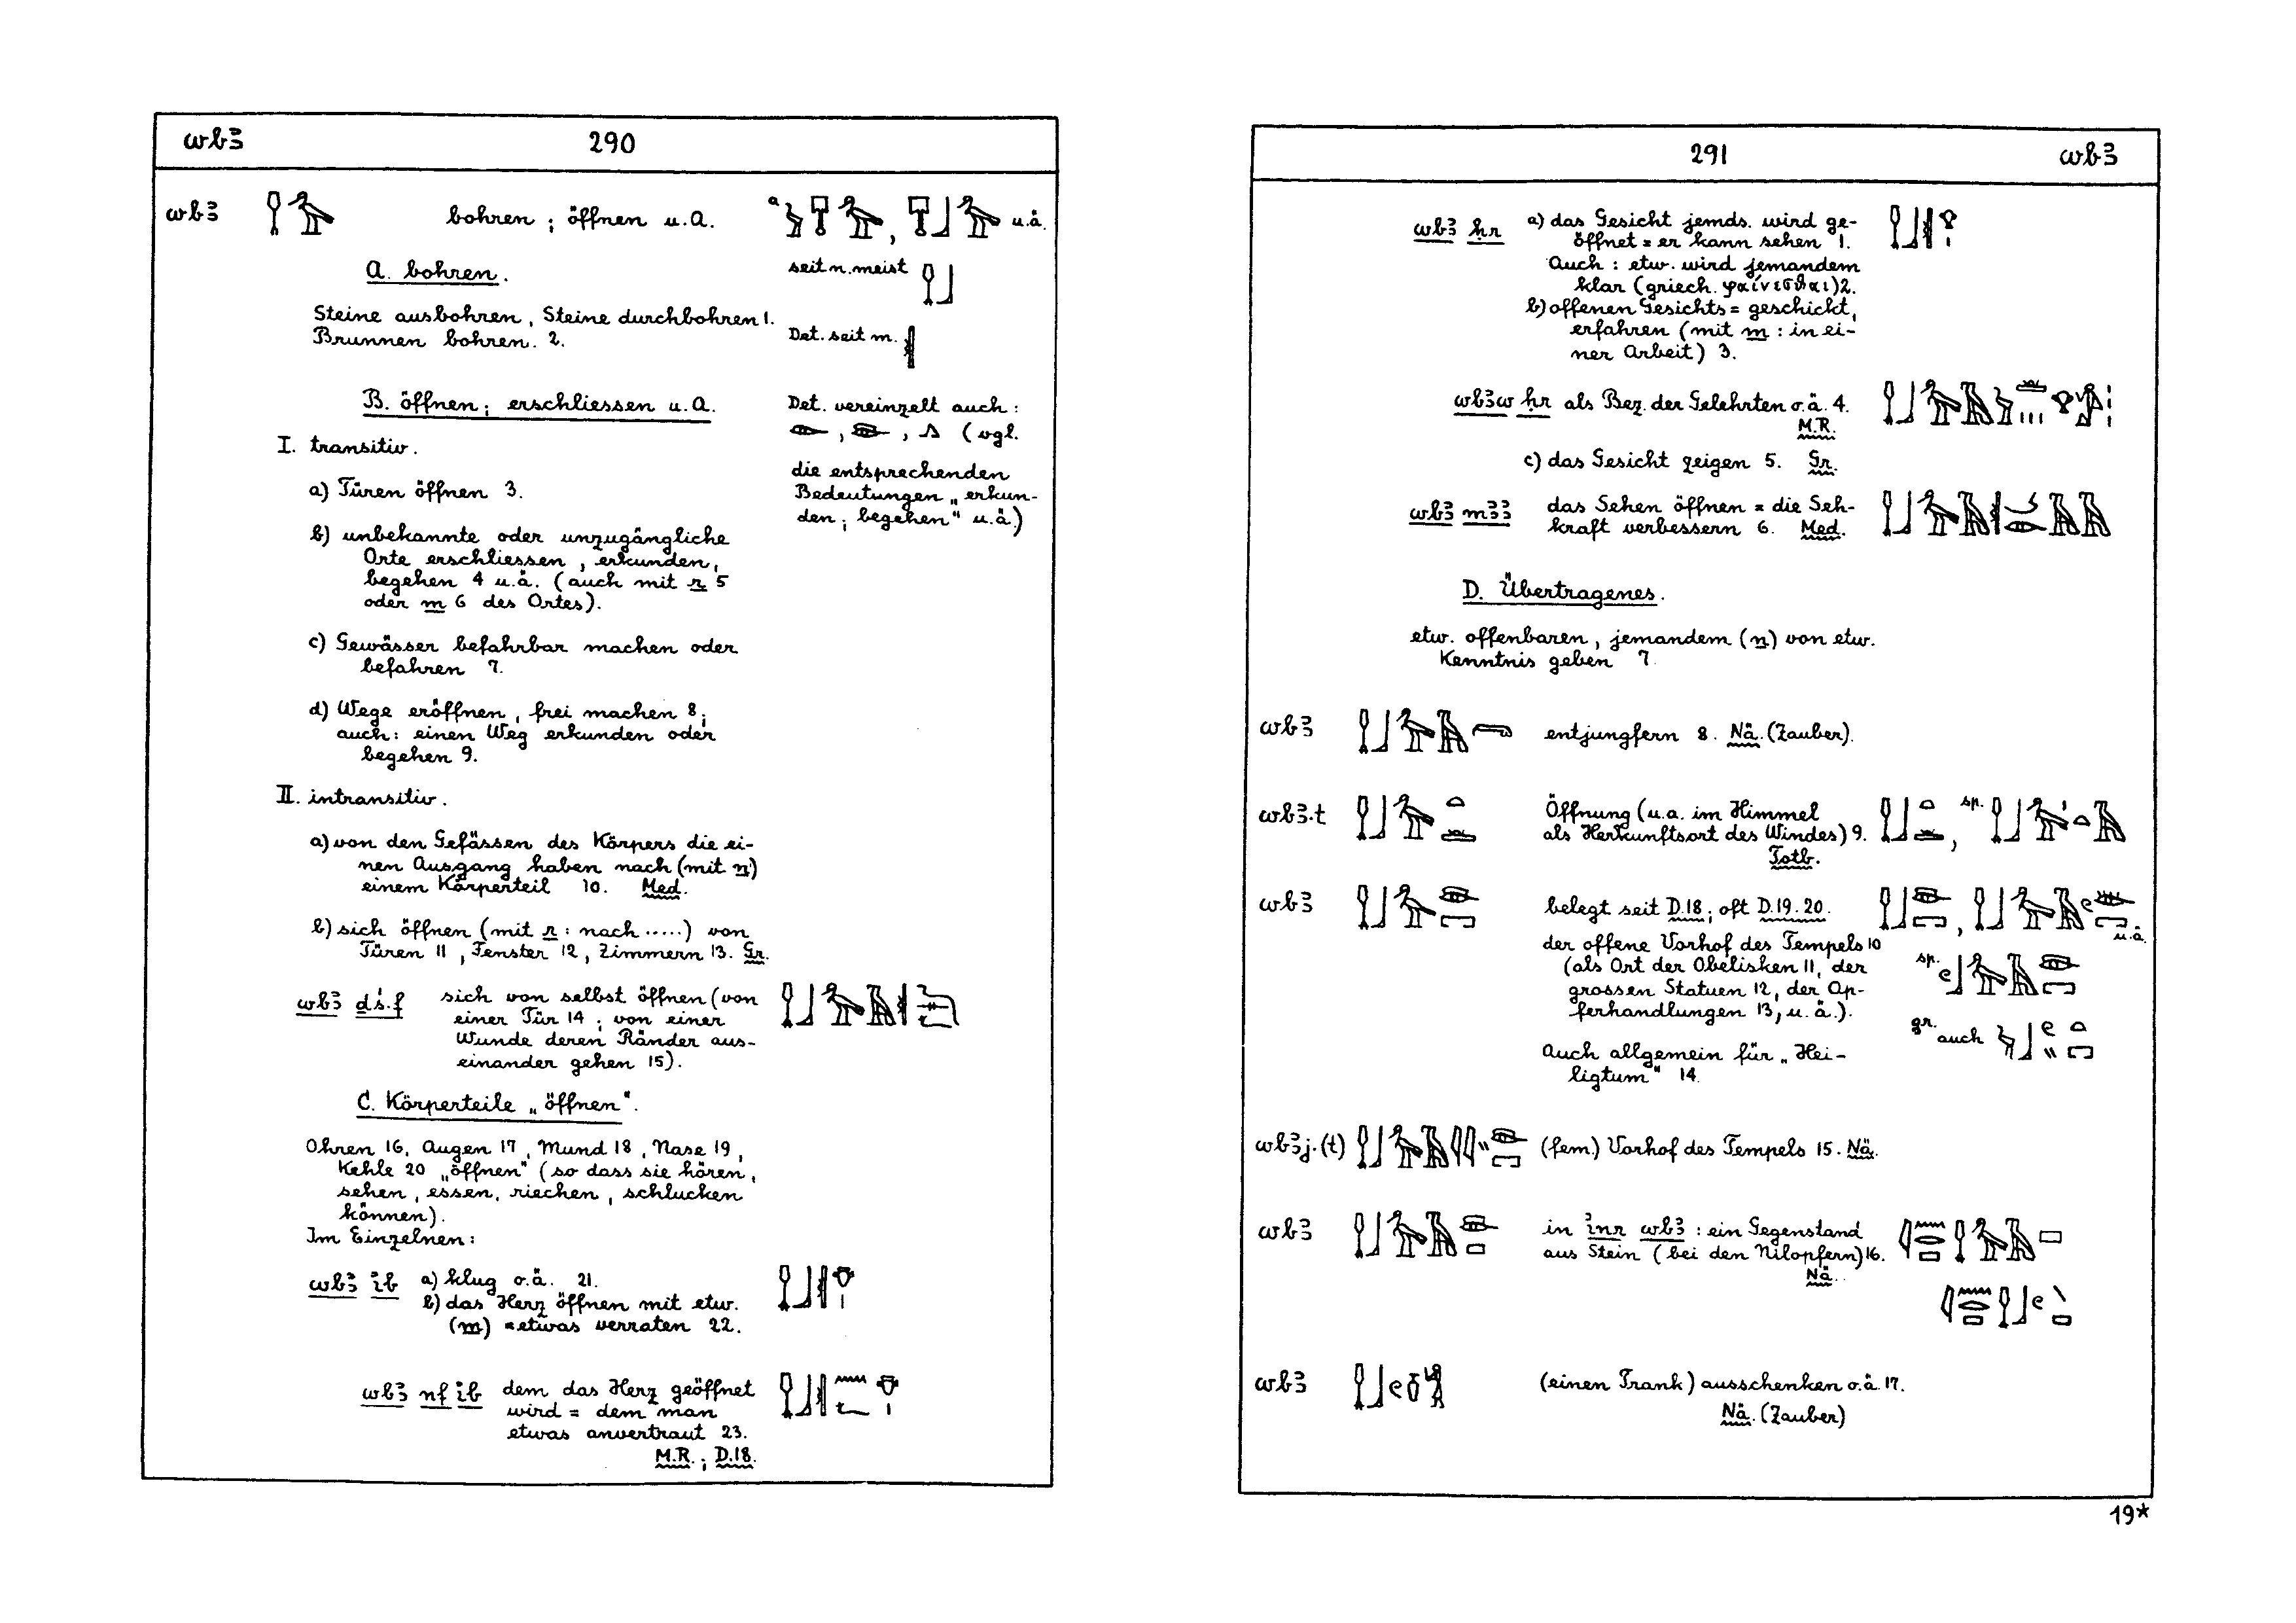 wbꜣ 290
wbꜣ bohren ; öffnen u.a.
u.ä.
A. bohren.
seit n. meist
Steine ausbohren, Steine durchbohren 1.
Brunnen bohren. 2.
Det. seit m.
B. öffnen; erschliessen u.a.
Det. vereinzelt auch:
, , (vgl.
die entsprechenden
Bedeutungen „erkun-
den; begehen" u.ä.)
I. transitiv.
a) Türen öffnen 3.
b) unbekannte oder unzugängliche
Orte erschliessen, erkunden,
begehen 4 u.ä. (auch mit r 5
oder m 6 des Ortes).
c) Gewässer befahrbar machen oder
befahren 7.
d) Wege eröffnen, frei machen 8;
auch: einen Weg erkunden oder
begehen 9.
II. intransitiv.
a) von den Gefässen des Körpers die ei-
nen Ausgang haben nach (mit n)
einem Körperteil 10. Med.
b) sich öffnen (mit r: nach .....) von
Türen 11, Fenster 12, Zimmern 13. Gr.
wbꜣ ḏś.f sich von selbst öffnen (von
einer Tür 14; von einer
Wunde deren Ränder aus-
einander gehen 15).
C. Körperteile „öffnen".
Ohren 16, Augen 17, Mund 18, Nase 19,
Kehle 20 „öffnen" (so dass sie hören,
sehen, essen, riechen, schlucken
können).
Im Einzelnen:
wbꜣ ib a) klug o.ä. 21.
b) das Herz öffnen mit etw.
(m) = etwas verraten 22.
wbꜣ nf ib dem das Herz geöffnet
wird = dem man
etwas anvertraut 23.
M.R.; D.18.
291 wbꜣ
wbꜣ ḥr a) das Gesicht jemds. wird ge-
öffnet = er kann sehen 1.
Auch: etw. wird jemandem
klar (griech. φαίνεσθαι) 2.
b) offenen Gesichts = geschickt,
erfahren (mit m: in ei-
ner Arbeit) 3.
wbꜣw ḥr als Bez. der Gelehrten o.ä. 4.
M.R.
c) das Gesicht zeigen 5. Gr.
wbꜣ mꜣꜣ das Sehen öffnen = die Seh-
kraft verbessern 6. Med.
D. Übertragenes.
etw. offenbaren, jemandem (n) von etw.
Kenntnis geben 7.
wbꜣ entjungfern 8. Nä. (Zauber).
wbꜣ.t Öffnung (u.a. im Himmel
als Herkunftsort des Windes) 9.
Totb.
sp.
wbꜣ belegt seit D.18; oft D.19.20.
u.ä.
der offene Vorhof des Tempels 10
(als Ort der Obelisken 11, der
grossen Statuen 12, der Op-
ferhandlungen 13, u.ä.).
sp.
gr. auch
Auch allgemein für „Hei-
ligtum" 14.
wbꜣj.(t) (fem.) Vorhof des Tempels 15. Nä.
wbꜣ in inr wbꜣ: ein Gegenstand
aus Stein (bei den Nilopfern) 16.
Nä.
wbꜣ (einen Trank) ausschenken o.ä. 17.
Nä. (Zauber)
19*